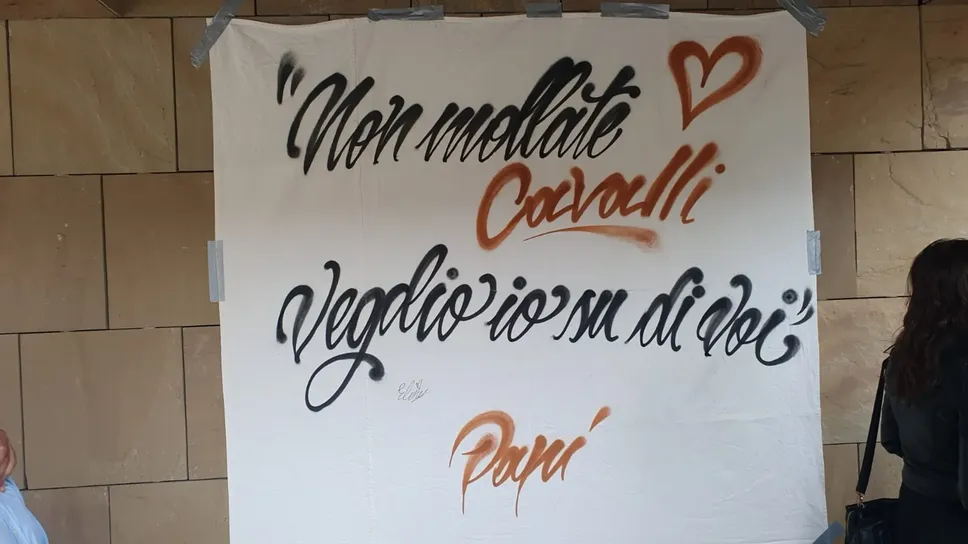 "Non mollate
Cavalli
Veglio io su di voi"
Papi